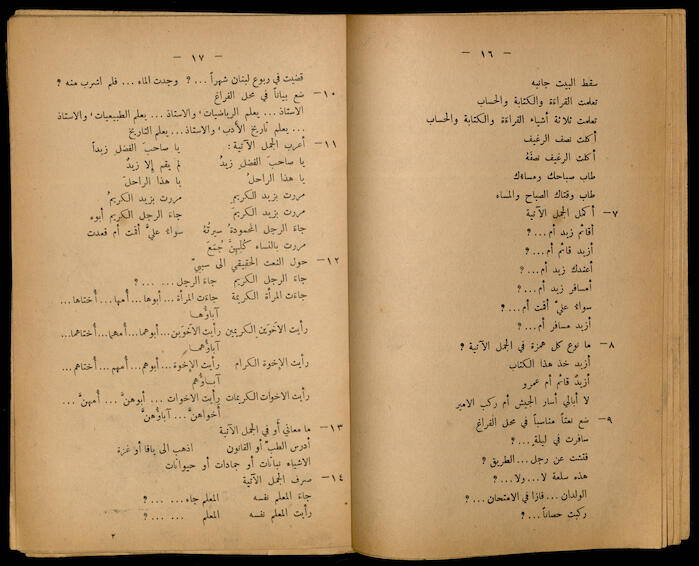 — ١٦ —
سقط البيت جانبه
تعلمت القراءة والكتابة والحساب
تعلمت ثلاثة أشياء القراءة والكتابة والحساب
أكلت نصف الرغيف
أكلت الرغيف نصفَهُ
طاب صباحك ومساءك
طاب وقتاك الصباح والمساء
٧ – أكمل الجمل الآتية
أقائم زيد أم ... ؟
أزيد قائم أم ... ؟
أعندك زيد أم ... ؟
أمسافر زيد أم ... ؟
سواءٌ عليَّ أقمت أم ... ؟
أزيد مسافر أم ... ؟
٨ – ما نوع كل همزة في الجمل الآتية ؟
أزيد خذ هذا الكتاب
أزيدٌ قائم أم عمرو
لا أبالي أسار الجيش أم ركب الامير
٩ – ضع نعتاً مناسباً في محل الفراغ
سافرت في ليلةٍ ... ؟
فتشت عن رجل ... الطريق ؟
هذه سلعة لا ... ولا ... ؟
الولدان ... فازا في الامتحان ... ؟
ركبت حصاناً ... ؟
— ١٧ —
قضيت في ربوع لبنان شهراً ... ؟ وجدت الماء ... فلم اشرب منه ؟
١٠ – ضع بياناً في محل الفراغ
الاستاذ ... يعلم الرياضيات، والاستاذ ... يعلم الطبيعيات، والاستاذ
... يعلم تاريخ الأدب، والاستاذ ... يعلم التاريخ
١١ – أعرب الجمل الآتية : يا صاحبَ الفضلِ زيداً
يا صاحبَ الفضلِ زيدُ لم يقم إلا زيدٌ
يا هذا الراحلُ يا هذا الراحلَ
مررت بزيد الكريمِ مررت بزيد الكريمُ
مررت بزيد الكريمَ جاءَ الرجل الكريم أبوه
جاءَ الرجل المحمودةُ سيرتُهُ سواءٌ عليَّ أقمت أم قعدت
مررت بالنساء كُلِّهِنَّ جُمَعَ
١٢ – حول النعت الحقيقي الى سببيّ
جاءَ الرجل الكريم جاءَ الرجل ... ... ؟
جاءَت المرأة الكريمة جاءَت المرأة ... أبوها ... أمها ... أختاها ...
آباؤُها
رأيت الأخوَين الكريمين رأيت الأخوَين ... أبوهما ... أمهما ... أختاهما ...
آباؤُهما
رأيت الإخوة الكرام رأيت الإخوة ... أبوهم ... أمهم ... أختاهم ...
آباؤُهم
رأيت الاخوات الكريمات رأيت الاخوات ... أبوهنَّ ... أمهنَّ ...
أخواهنَّ ... آباؤُهنَّ
١٣ – ما معاني أو في الجمل الآتية
أدرس الطبّ أو القانون اذهب الى يافا أو غزة
الاشياء نباتات أو جمادات أو حيوانات
١٤ – صرف الجمل الآتية
جاءَ المعلم نفسه المعلم جاء ... ... ؟
رأيت المعلم نفسه المعلم ... ... ؟
٢